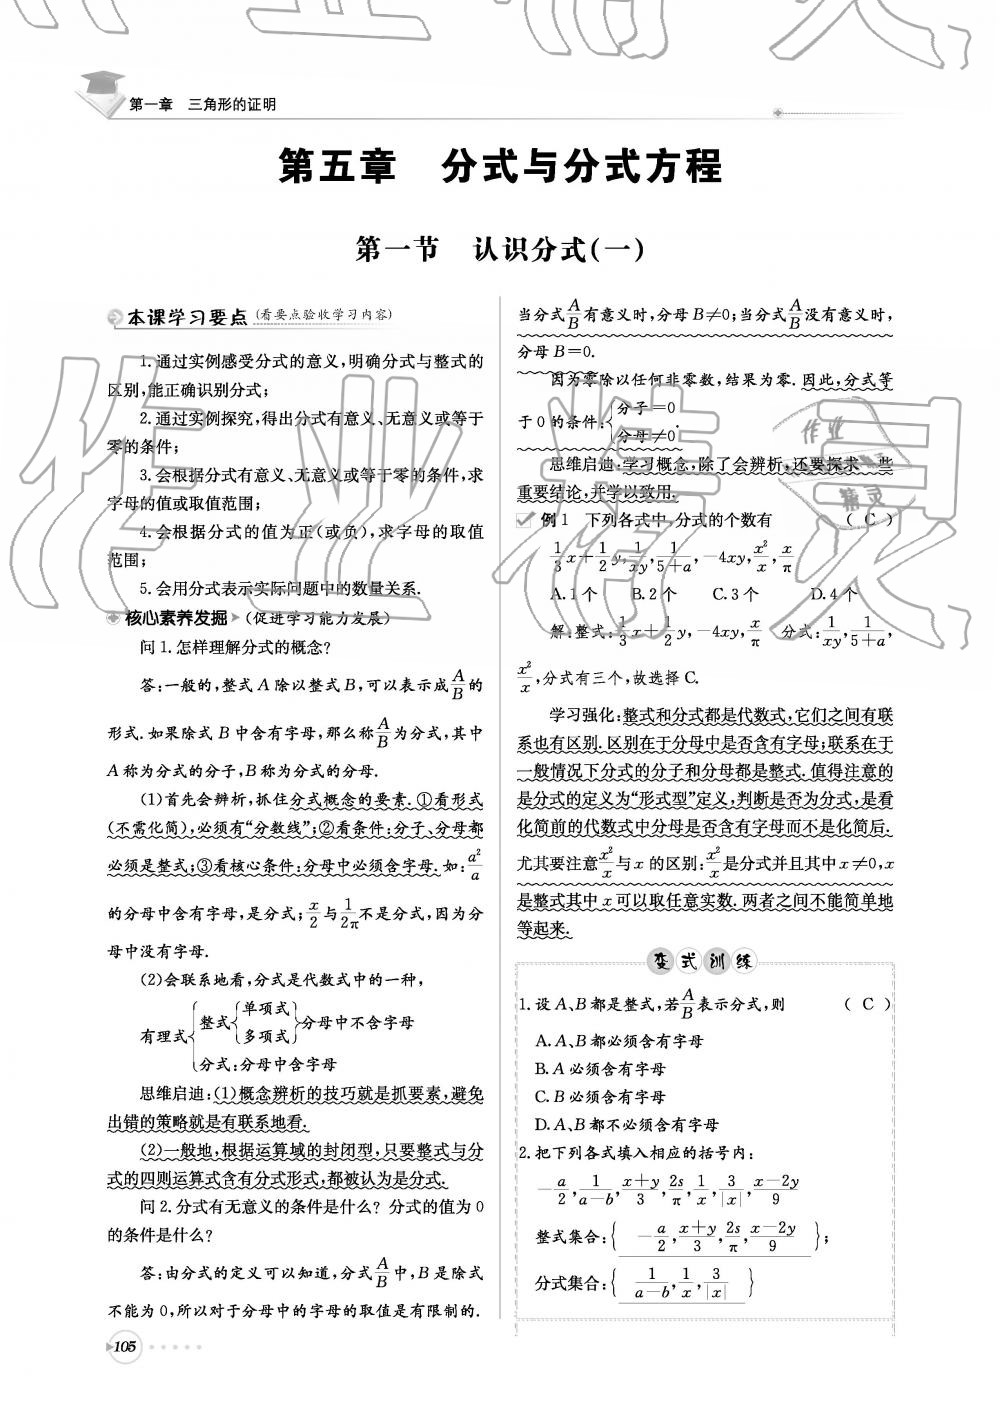 第一章 三角形的证明
第五章 分式与分式方程
第一节 认识分式(一)
本课学习要点(看要点验收学习内容)
1.通过实例感受分式的意义,明确分式与整式的
区别,能正确识别分式;
2.通过实例探究,得出分式有意义、无意义或等于
零的条件;
3.会根据分式有意义、无意义或等于零的条件,求
字母的值或取值范围;
4.会根据分式的值为正(或负),求字母的取值
范围;
5.会用分式表示实际问题中的数量关系.
核心素养发掘(促进学习能力发展)
问1.怎样理解分式的概念?
答:一般的,整式A除以整式B,可以表示成A/B的
形式.如果除式B中含有字母,那么称A/B为分式,其中
A称为分式的分子,B称为分式的分母.
(1)首先会辨析,抓住分式概念的要素.①看形式
(不需化简),必须有“分数线”;②看条件:分子、分母都
必须是整式;③看核心条件:分母中必须含字母.如:a²/a
的分母中含有字母,是分式;x/2与1/2π不是分式,因为分
母中没有字母.
(2)会联系地看,分式是代数式中的一种,
有理式{整式{单项式 多项式}分母中不含字母
分式:分母中含字母
思维启迪:(1)概念辨析的技巧就是抓要素,避免
出错的策略就是有联系地看.
(2)一般地,根据运算域的封闭型,只要整式与分
式的四则运算式含有分式形式,都被认为是分式.
问2.分式有无意义的条件是什么?分式的值为0
的条件是什么?
答:由分式的定义可以知道,分式A/B中,B是除式
不能为0,所以对于分母中的字母的取值是有限制的.
105
当分式A/B有意义时,分母B≠0;当分式A/B没有意义时,
分母B=0.
因为零除以任何非零数,结果为零.因此,分式等
于0的条件:{分子=0 分母≠0.
思维启迪:学习概念,除了会辨析,还要探求一些
重要结论,并学以致用.
例1 下列各式中,分式的个数有 ( C )
1/3x+1/2y,1/xy,1/5+a,-4xy,x²/x,x/π
A.1个 B.2个 C.3个 D.4个
解:整式:1/3x+1/2y,-4xy,x/π 分式:1/xy,1/5+a,
x²/x,分式有三个,故选择C.
学习强化:整式和分式都是代数式,它们之间有联
系也有区别.区别在于分母中是否含有字母;联系在于
一般情况下分式的分子和分母都是整式.值得注意的
是分式的定义为“形式型”定义,判断是否为分式,是看
化简前的代数式中分母是否含有字母而不是化简后.
尤其要注意x²/x与x的区别:x²/x是分式并且其中x≠0,x
是整式其中x可以取任意实数.两者之间不能简单地
等起来.
变式训练
1.设A、B都是整式,若A/B表示分式,则 ( C )
A.A、B都必须含有字母
B.A必须含有字母
C.B必须含有字母
D.A、B都不必须含有字母
2.把下列各式填入相应的括号内:
-a/2,1/a-b,x+y/3,2s/π,1/x,3/|x|,x-2y/9
整式集合:{ -a/2,x+y/3,2s/π,x-2y/9 };
分式集合:{ 1/a-b,1/x,3/|x| }
作业精灵
作业
精灵